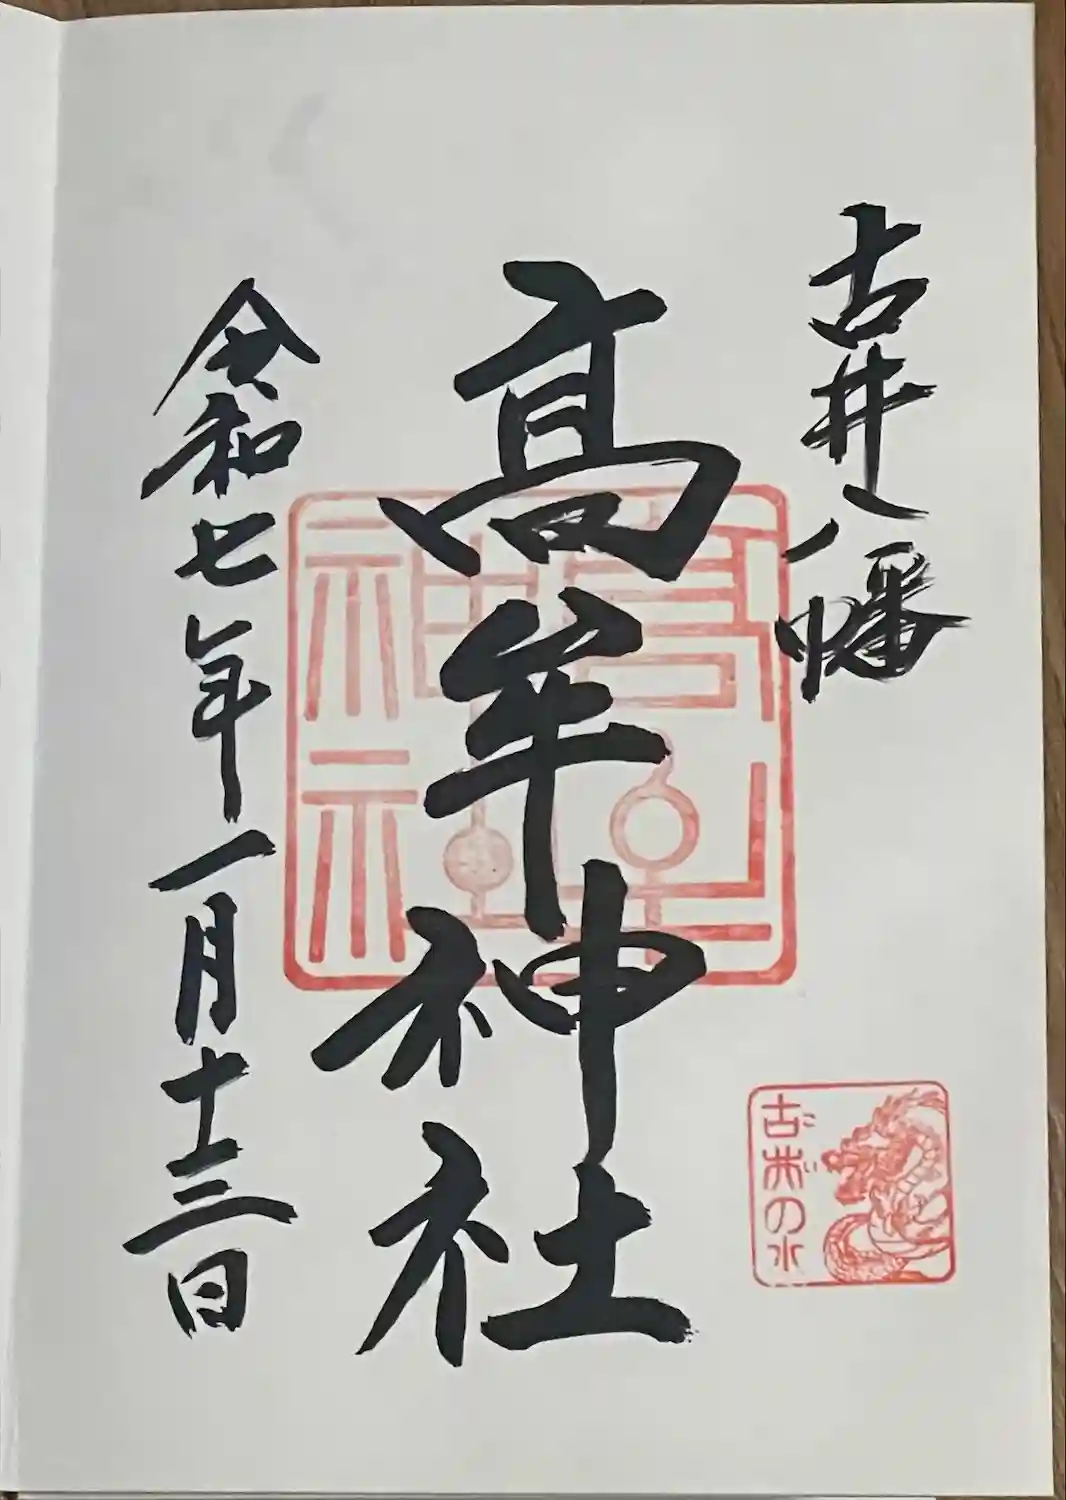 古井八幡
高牟神社
令和七年一月十三日
高牟神社
古井の水
こい